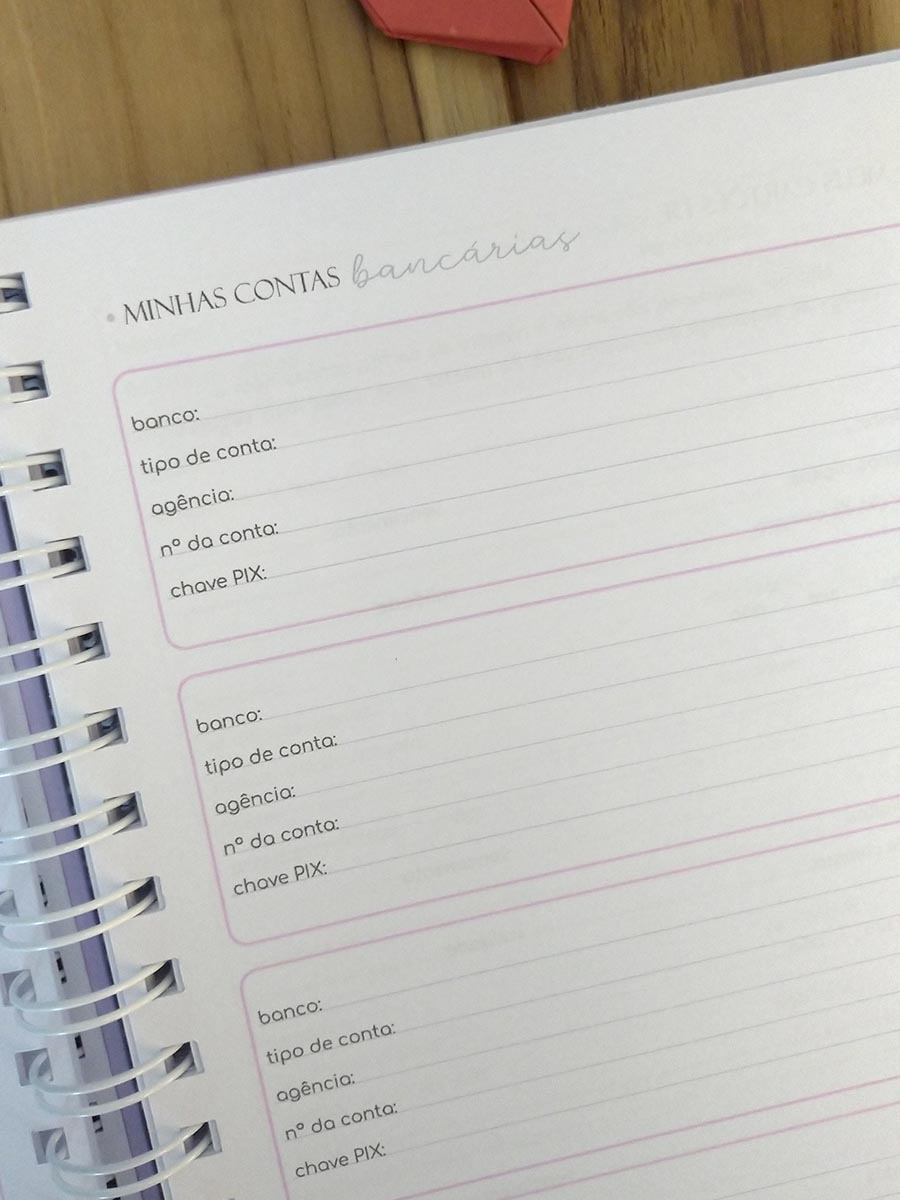 • MINHAS CONTAS bancárias
banco:
tipo de conta:
agência:
nº da conta:
chave PIX:
banco:
tipo de conta:
agência:
nº da conta:
chave PIX:
banco:
tipo de conta:
agência:
nº da conta:
chave PIX: